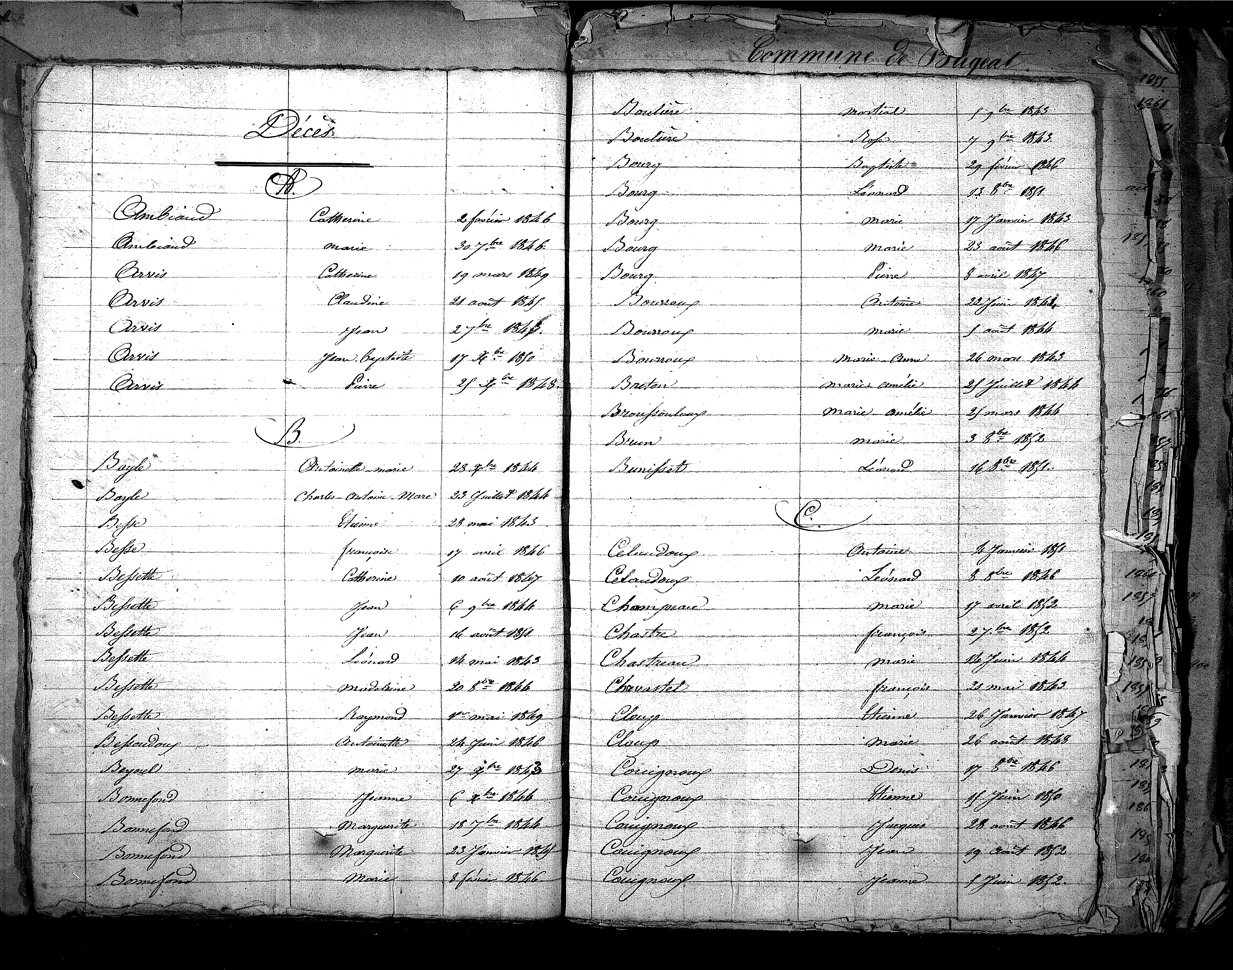 Commune de Bugeat
Décès
A
Ambiaud Catherine 2 février 1846
Ambiaud marie 30 7bre 1846
Arvis Catherine 19 mars 1849
Arvis Claudine 21 août 1845
Arvis Jean 2 7bre
Arvis Jean Baptiste 17 Xbre 1850
Arvis Pierre 25 Xbre 1848
B
Bayle Antoinette-marie 28 Xbre 1844
Bayle Charles-Antoine-Marc 23 Juillet 1844
Besse Etienne 28 mai 1843
Besse françoise 17 avril 1846
Bessette Catherine 10 août 1847
Bessette Jean 6 9bre 1844
Bessette Jean 16 août 1851
Bessette Léonard 14 mai 1843
Bessette madeleine 20 8bre 1844
Bessette Raymond 1er mai 1849
Bessoudoux Antoinette 24 Juin 1846
marie 27 Xbre 1843
Bonnefond Jeanne 6 Xbre 1844
Bonnefond Marguerite 18 7bre 1844
Bonnefond Marguerite 23 Janvier
Bonnefond Marie 2 février 1846
Boutière martial 5 9bre 1843
Boutière Rose 7 9bre 1843
Bourg Baptiste 29 février 1846
Bourg Léonard 13 8bre 1851
Bourg marie 17 Janvier 1843
Bourg marie 23 août 1846
Bourg Pierre 8 avril 1847
Bourroux Antoine 22 Juin
Bourroux marie 5 août 1844
Bourroux marie-Anne 26 mars 1843
Breton marie amélie 25 Juillet 1844
Broussouloux marie amélie 25 mars 1844
Brun marie 3 8bre 1852
Bunisset Léonard 16 8bre 1851
C.
Celaudoux Antoine 4 Janvier 1851
Celaudoux Léonard 8 8bre 1846
Champeau marie 17 avril 1852
Chastre françois 2 7bre 1852
Chastreau marie 14 Juin 1844
Chavastel françois 21 mai 1843
Cloup Etienne 26 Janvier 1847
Cloup Marie 26 août 1843
Couignoux Denis 17 8bre 1846
Couignoux Etienne 15 Juin 1850
Couignoux Jacques 28 août 1846
Couignoux Jean 19 août 1852
Couignoux Jeanne 5 Juin 1852